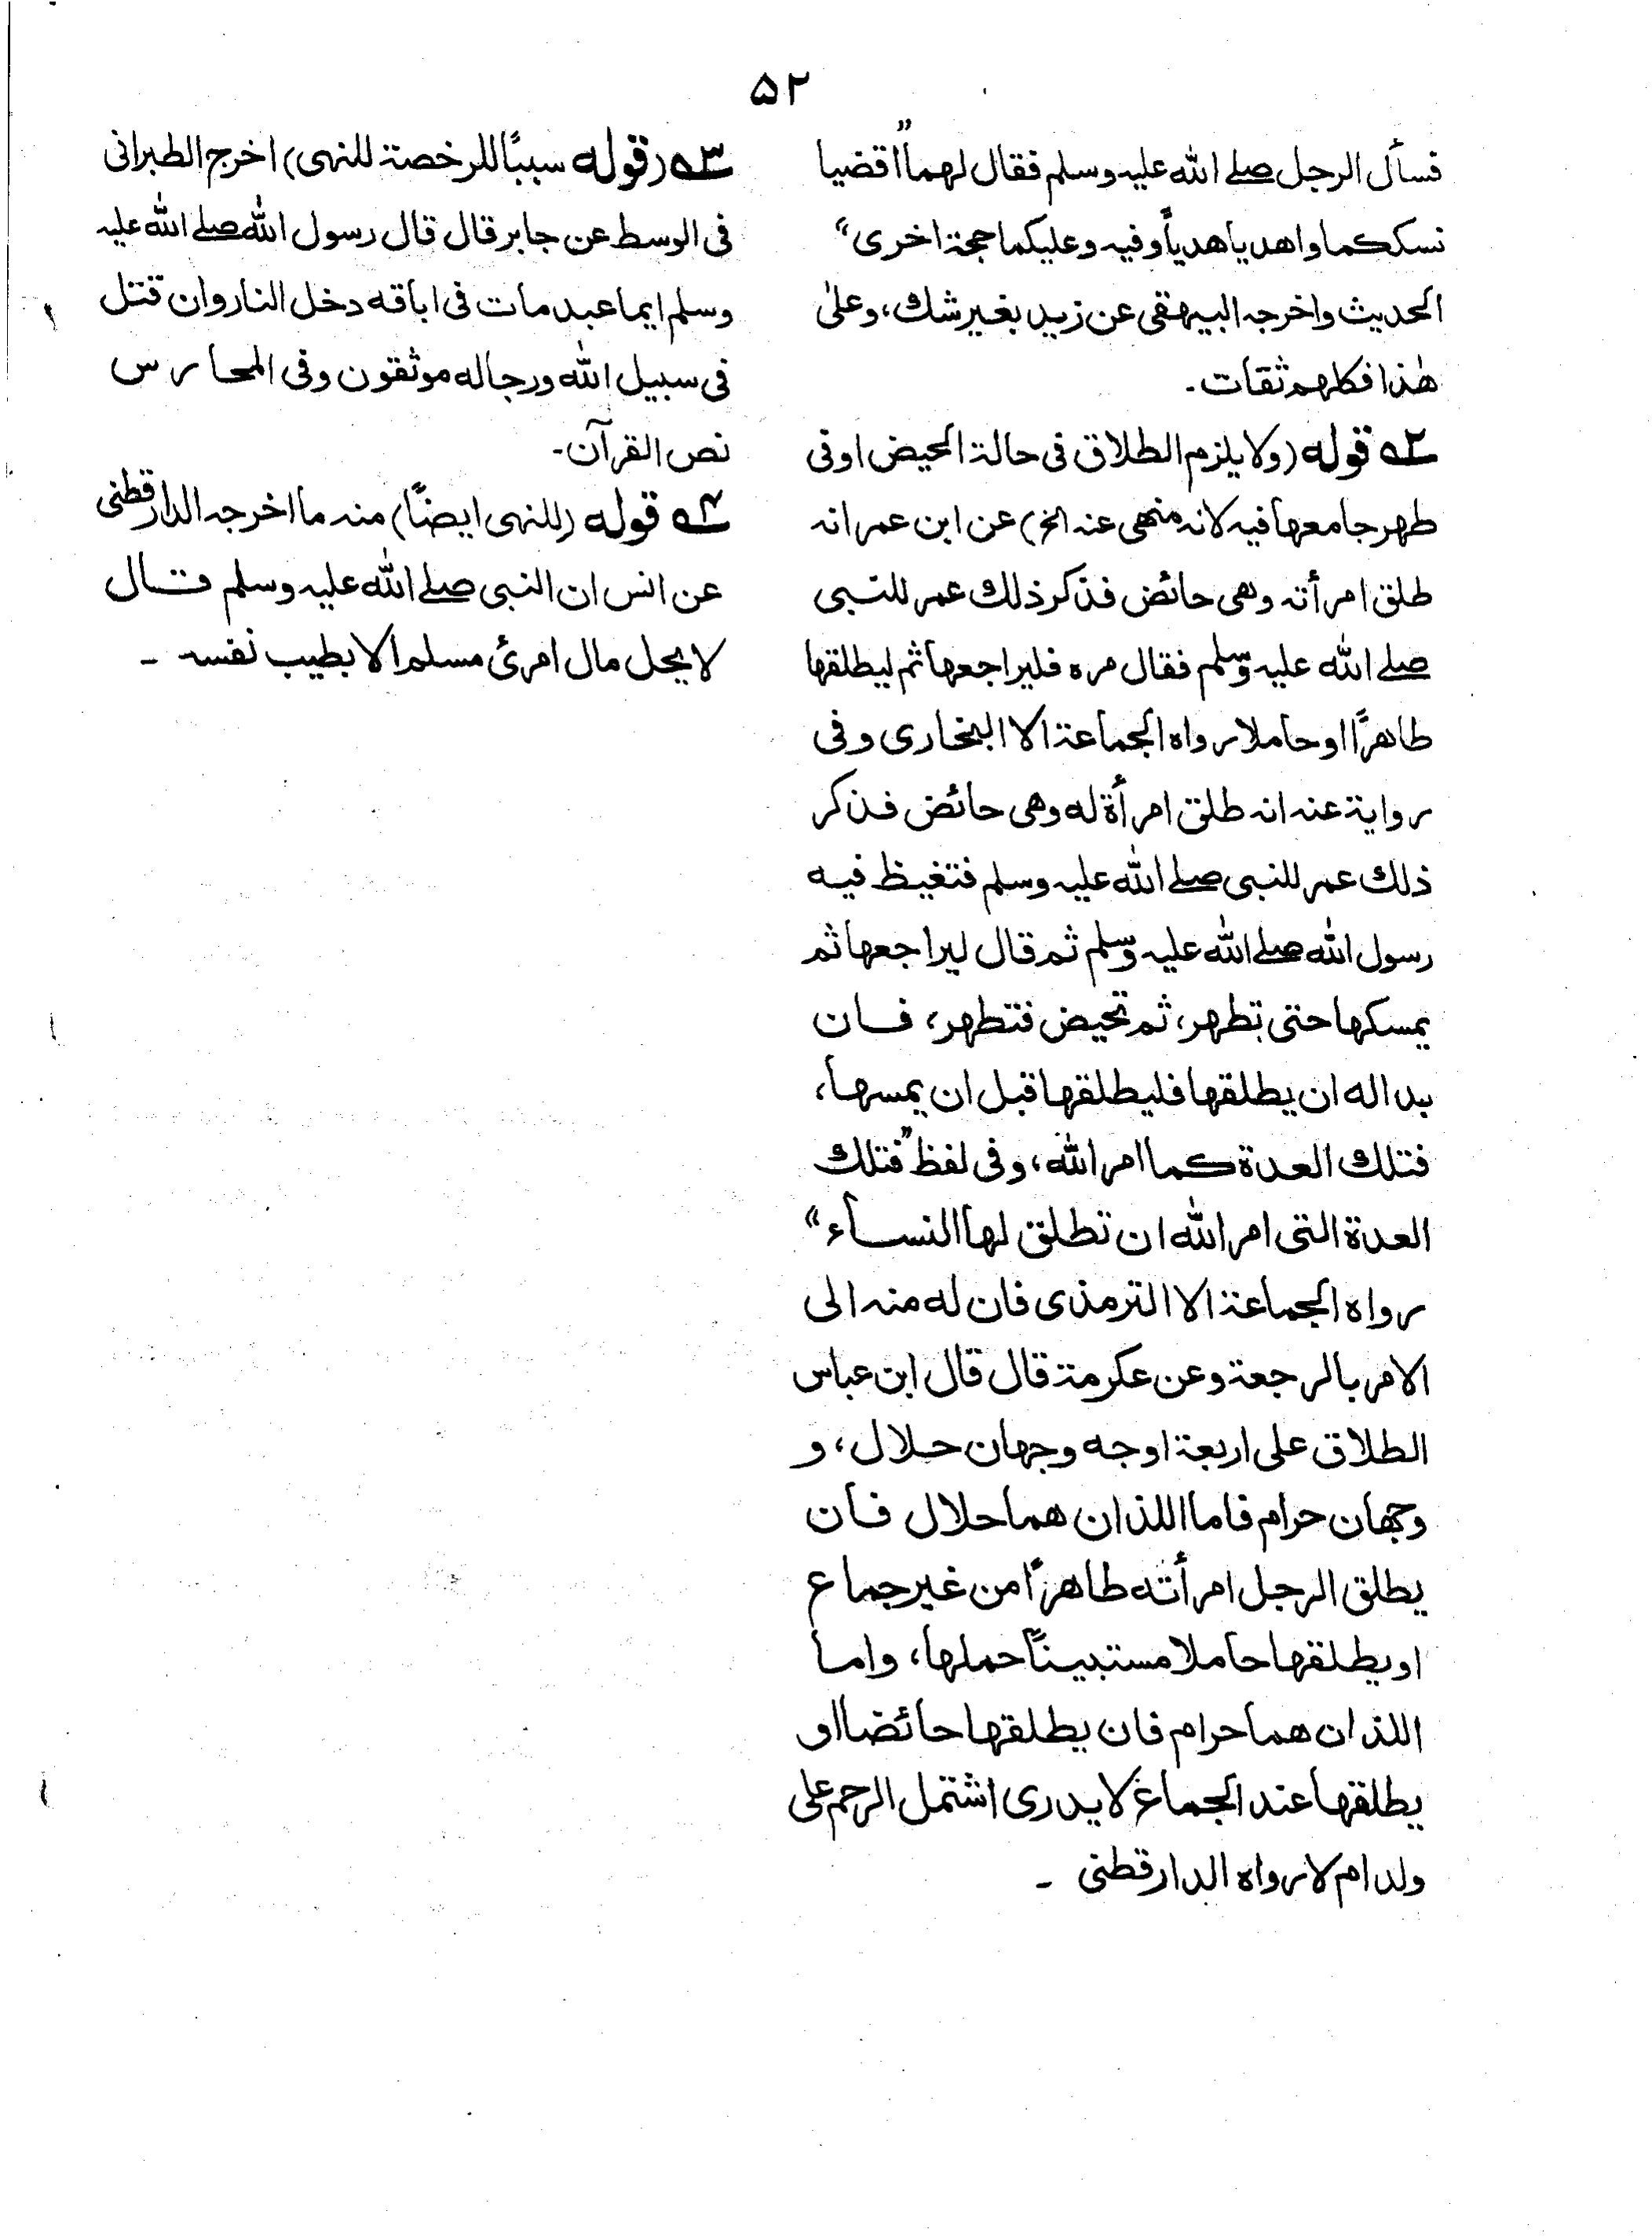 ۵۲
فسأل الرجل صلے الله عليه وسلم فقال لهما "اقضيا
نسككما واهديا هدياً وفيه وعليكما حجة اخرى"
الحديث واخرجه البيهقي عن زيد بغير شك، وعلىٰ
هٰذا فكلهم ثقات۔
۵۲ قوله (ولا يلزم الطلاق فى حالة الحيض اوفى
طهر جامعها فيه لانه منهى عنه الخ) عن ابن عمر انه
طلق امرأته وهى حائض فذكر ذلك عمر للنبى
صلے الله عليه وسلم فقال مره فليراجعها ثم ليطلقها
طاهرًا او حاملا رواه الجماعة الا البخارى وفى
رواية عنه انه طلق امرأة له وهى حائض فذكر
ذلك عمر للنبى صلے الله عليه وسلم فتغيظ فيه
رسول الله صلے الله عليه وسلم ثم قال ليراجعها ثم
يمسكها حتى تطهر، ثم تحيض فتطهر، فان
بدا له ان يطلقها فليطلقها قبل ان يمسها،
فتلك العدة كما امر الله، وفى لفظ "فتلك
العدة التى امر الله ان تطلق لها النساء"
رواه الجماعة الا الترمذى فان له منه الى
الامر بالرجعة وعن عكرمة قال قال ابن عباس
الطلاق على اربعة اوجه وجهان حلال، و
وجهان حرام فاما اللذان هما حلال فان
يطلق الرجل امرأته طاهرًا من غير جماع
او يطلقها حاملا مستبينًا حملها، واما
اللذان هما حرام فان يطلقها حائضا او
يطلقها عند الجماع لا يدرى اشتمل الرحم على
ولد ام لا رواه الدارقطنى ۔
۵۳ (قوله سببًا للرخصة للنهى) اخرج الطبرانى
فى الوسط عن جابر قال قال رسول الله صلے الله عليه
وسلم ايما عبد مات فى اباقه دخل النار وان قتل
فى سبيل الله ورجاله موثقون وفى المحارس
نص القرآن۔
۵۴ قوله (للنهى ايضًا) منه ما اخرجه الدارقطنى
عن انس ان النبى صلے الله عليه وسلم قال
لا يحل مال امرئ مسلم الا بطيب نفسه ۔